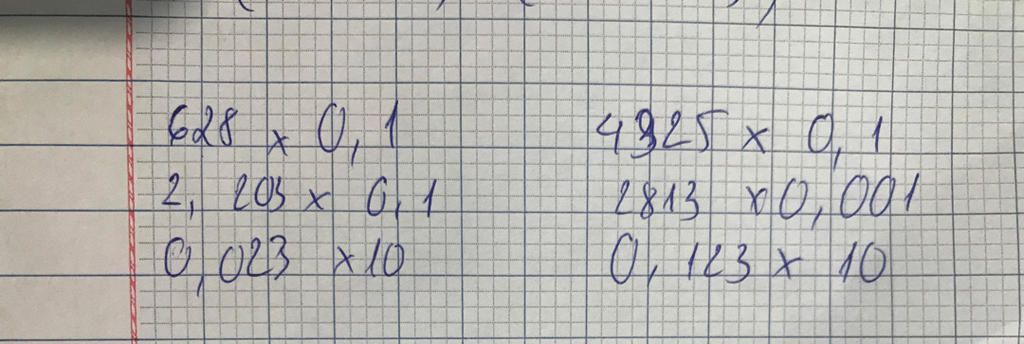 628 x 0,1 4325 x 0,1
2,203 x 0,1 2813 x 0,001
0,023 x 10 0,123 x 10